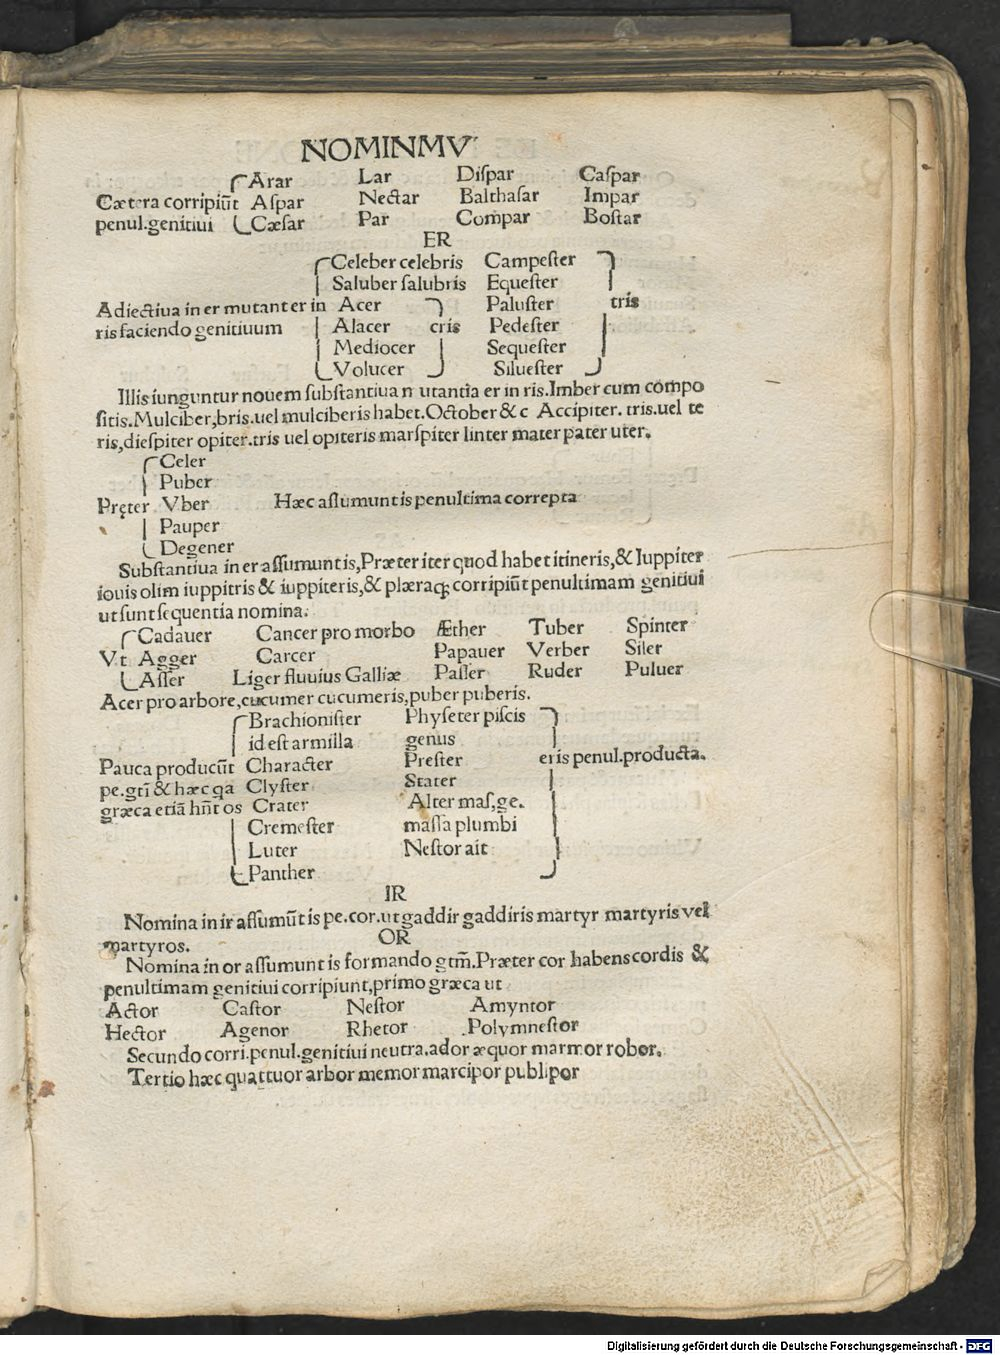 NOMINMV
Arar Lar Diſpar Caſpar
Cætera corripiūt Aſpar Nectar Balthaſar Impar
penul.genitiui Cæſar Par Compar Boſtar
ER
Celeber celebris Campeſter
Saluber ſalubris Equeſter
Adiectiua in er mutant er in Acer Paluſter tris
ris faciendo genitiuum Alacer cris Pedeſter
Mediocer Sequeſter
Volucer Silueſter
Illis iunguntur nouem ſubſtantiua n utantia er in ris.Imber cum compo
ſitis.Mulciber,bris.uel mulciberis habet.October & c Accipiter. tris.uel te
ris,dieſpiter opiter.tris uel opiteris marſpiter linter mater pater uter.
Celer
Puber
Pręter Vber Hæc aſſumunt is penultima correpta
Pauper
Degener
Subſtantiua in er aſſumunt is,Præter iter quod habet itineris,& Iuppiter
iouis olim iuppitris & iuppiteris,& plæraqꝫ corripiūt penultimam genitiui
ut ſunt ſequentia nomina.
Cadauer Cancer pro morbo Æther Tuber Spinter
Vt Agger Carcer Papauer Verber Siler
Aſſer Liger fluuius Galliæ Paſſer Ruder Puluer
Acer pro arbore,cucumer cucumeris,puber puberis.
Brachioniſter Phyſeter piſcis
id eſt armilla genus
Pauca producūt Character Preſter eris penul.producta.
pe.gtī & hæc qa Clyſter Stater
græca etiā hn̄t os Crater Alter maſ,ge.
Cremeſter maſſa plumbi
Luter Neſtor ait
Panther
IR
Nomina in ir aſſumūt is pe.cor.ut gaddir gaddiris martyr martyris vel
martyros.
OR
Nomina in or aſſumunt is formando gtm̄.Præter cor habens cordis &
penultimam genitiui corripiunt,primo græca ut
Actor Caſtor Neſtor Amyntor
Hector Agenor Rhetor .Polymneſtor
Secundo corri.penul.genitiui neutra.ador æquor marmor robor.
Tertio hæc quattuor arbor memor marcipor publipor
Digitalisierung gefördert durch die Deutsche Forschungsgemeinschaft - DFG